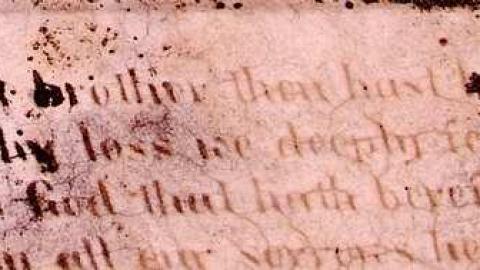 brother thou hast
loss we deeply
God that hath
all our sorrows